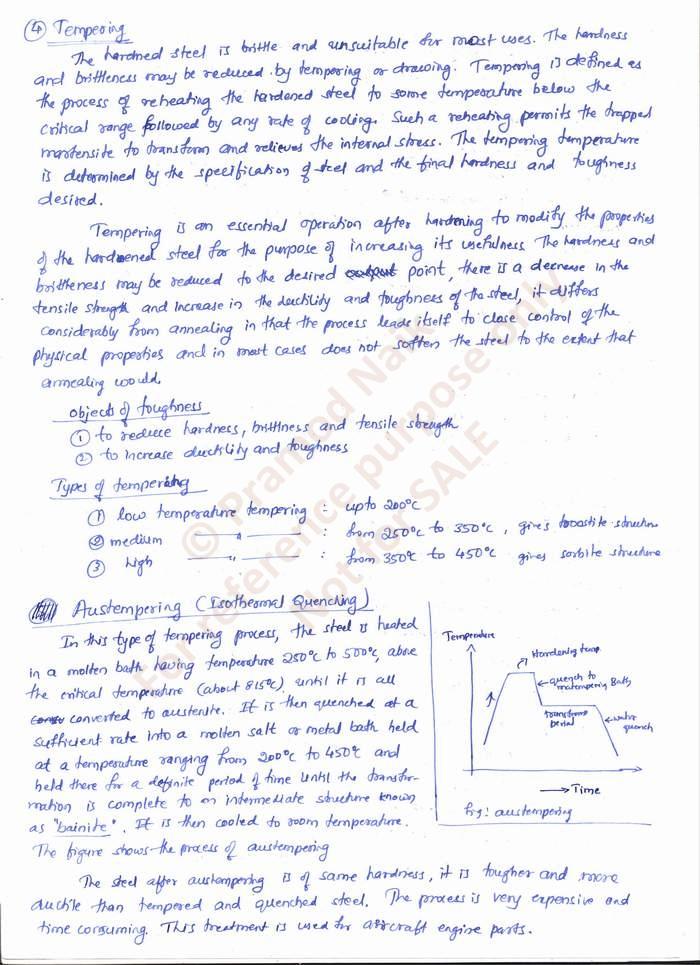 ④ Tempering
The hardned steel is brittle and unsuitable for most uses. The hardness
and brittleness may be reduced by tempering or drawing. Tempering is defined as
the process of reheating the hardened steel to some temperature below the
critical range followed by any rate of cooling. Such a reheating permits the trapped
martensite to transform and relieves the internal stress. The tempering temperature
is determined by the specification of steel and the final hardness and toughness
desired.
Tempering is an essential operation after hardening to modify the properties
of the hardened steel for the purpose of increasing its usefulness The hardness and
brittleness may be reduced to the desired point, there is a decrease in the
tensile strength and increase in the ductility and toughness of the steel, it differs
considerably from annealing in that the process leads itself to close control of the
physical properties and in most cases does not soften the steel to the extent that
annealing would.
objects of toughness
① to reduce hardness, brittlness and tensile strength
② to increase ductility and toughness
Types of tempering
① low temperature tempering : upto 200°C
② medium —— " —— : from 250°C to 350°C, gives troastite structure
③ high —— " —— : from 350°C to 450°C gives sorbite structure
Austempering (Isothermal Quenching)
In this type of tempering process, the steel is heated
in a molten bath having temperature 250°C to 500°C, above
the critical temperature (about 815°C) until it is all
converted to austenite. It is then quenched at a
sufficient rate into a molten salt or metal bath held
at a temperature ranging from 200°C to 450°C and
held there for a definite period of time until the transfor-
mation is complete to an intermediate structure known
as "bainite". It is then cooled to room temperature.
The figure shows the process of austempering
Temperature
Hardening temp.
quench to
matempering Bath
transform
period
water
quench
→ Time
fig: austempering
The steel after austempering is of same hardness, it is tougher and more
ductile than tempered and quenched steel. The process is very expensive and
time consuming. This treatment is used for aircraft engine parts.
© Pramod Naik
For reference purpose only
Not for SALE